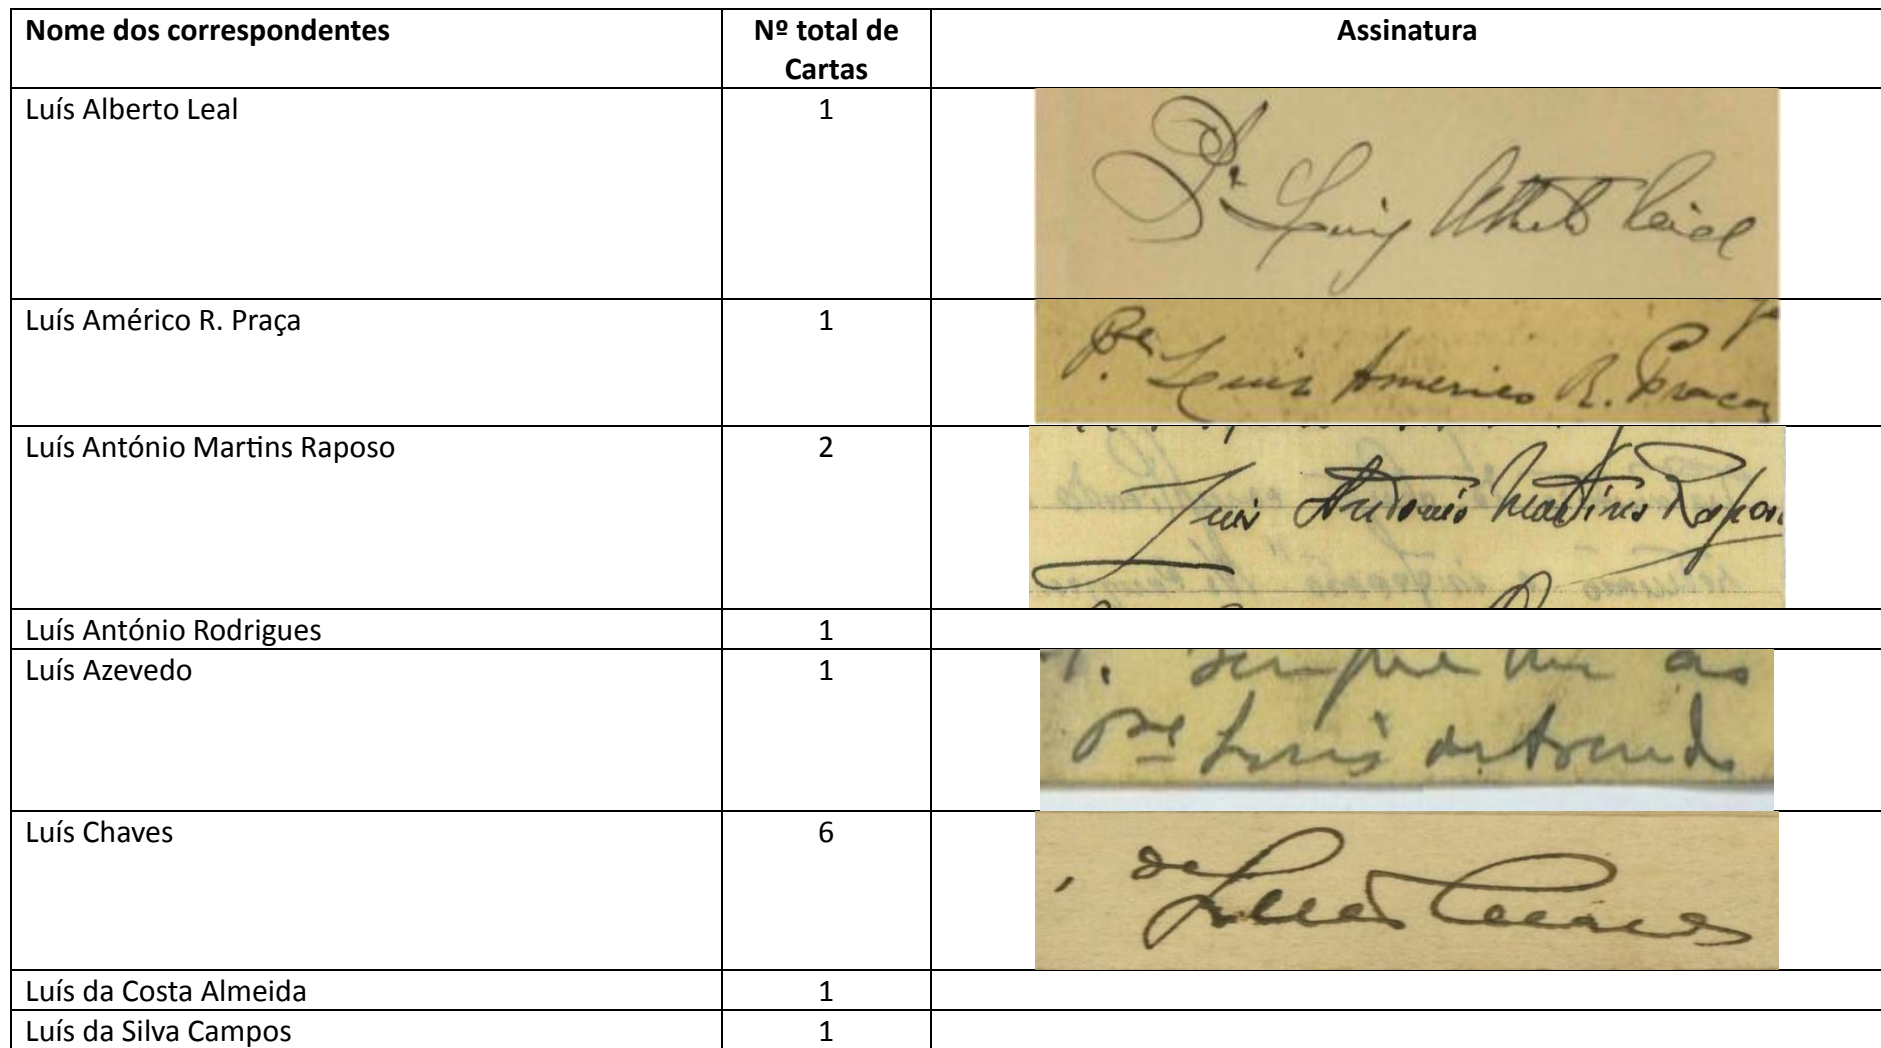 Nome dos correspondentes
Nº total de
Cartas
Assinatura
Luís Alberto Leal
1
Pe. Luiz Alberto Leal
Luís Américo R. Praça
1
Pe. Luis Americo R. Praça
Luís António Martins Raposo
2
Luis Antonio Martins Raposo
Luís António Rodrigues
1
Luís Azevedo
1
sempre
Pe Luis de Azevedo
Luís Chaves
6
de
Luis Chaves
Luís da Costa Almeida
1
Luís da Silva Campos
1